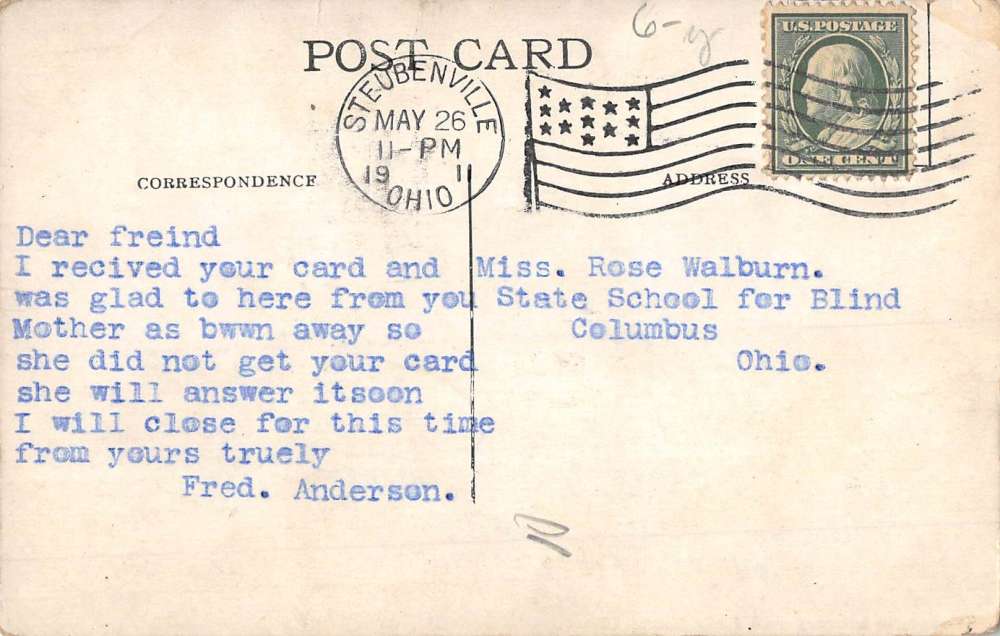 6-
POST CARD
U.S. POSTAGE
ONE CENT
STEUBENVILLE
MAY 26
11-PM
1911
OHIO
CORRESPONDENCE
ADDRESS
Dear freind
I recived your card and
was glad to here from you
Mother as bwwn away so
she did not get your card
she will answer itsoon
I will close for this time
from yours truely
Fred. Anderson.
Miss. Rose Walburn.
State School for Blind
Columbus
Ohio.